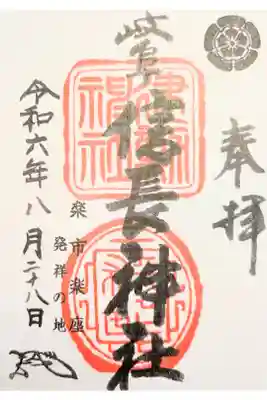 奉拝
岐阜信長神社
建勲
神社
楽市楽座
発祥の地
令和六年八月二十八日